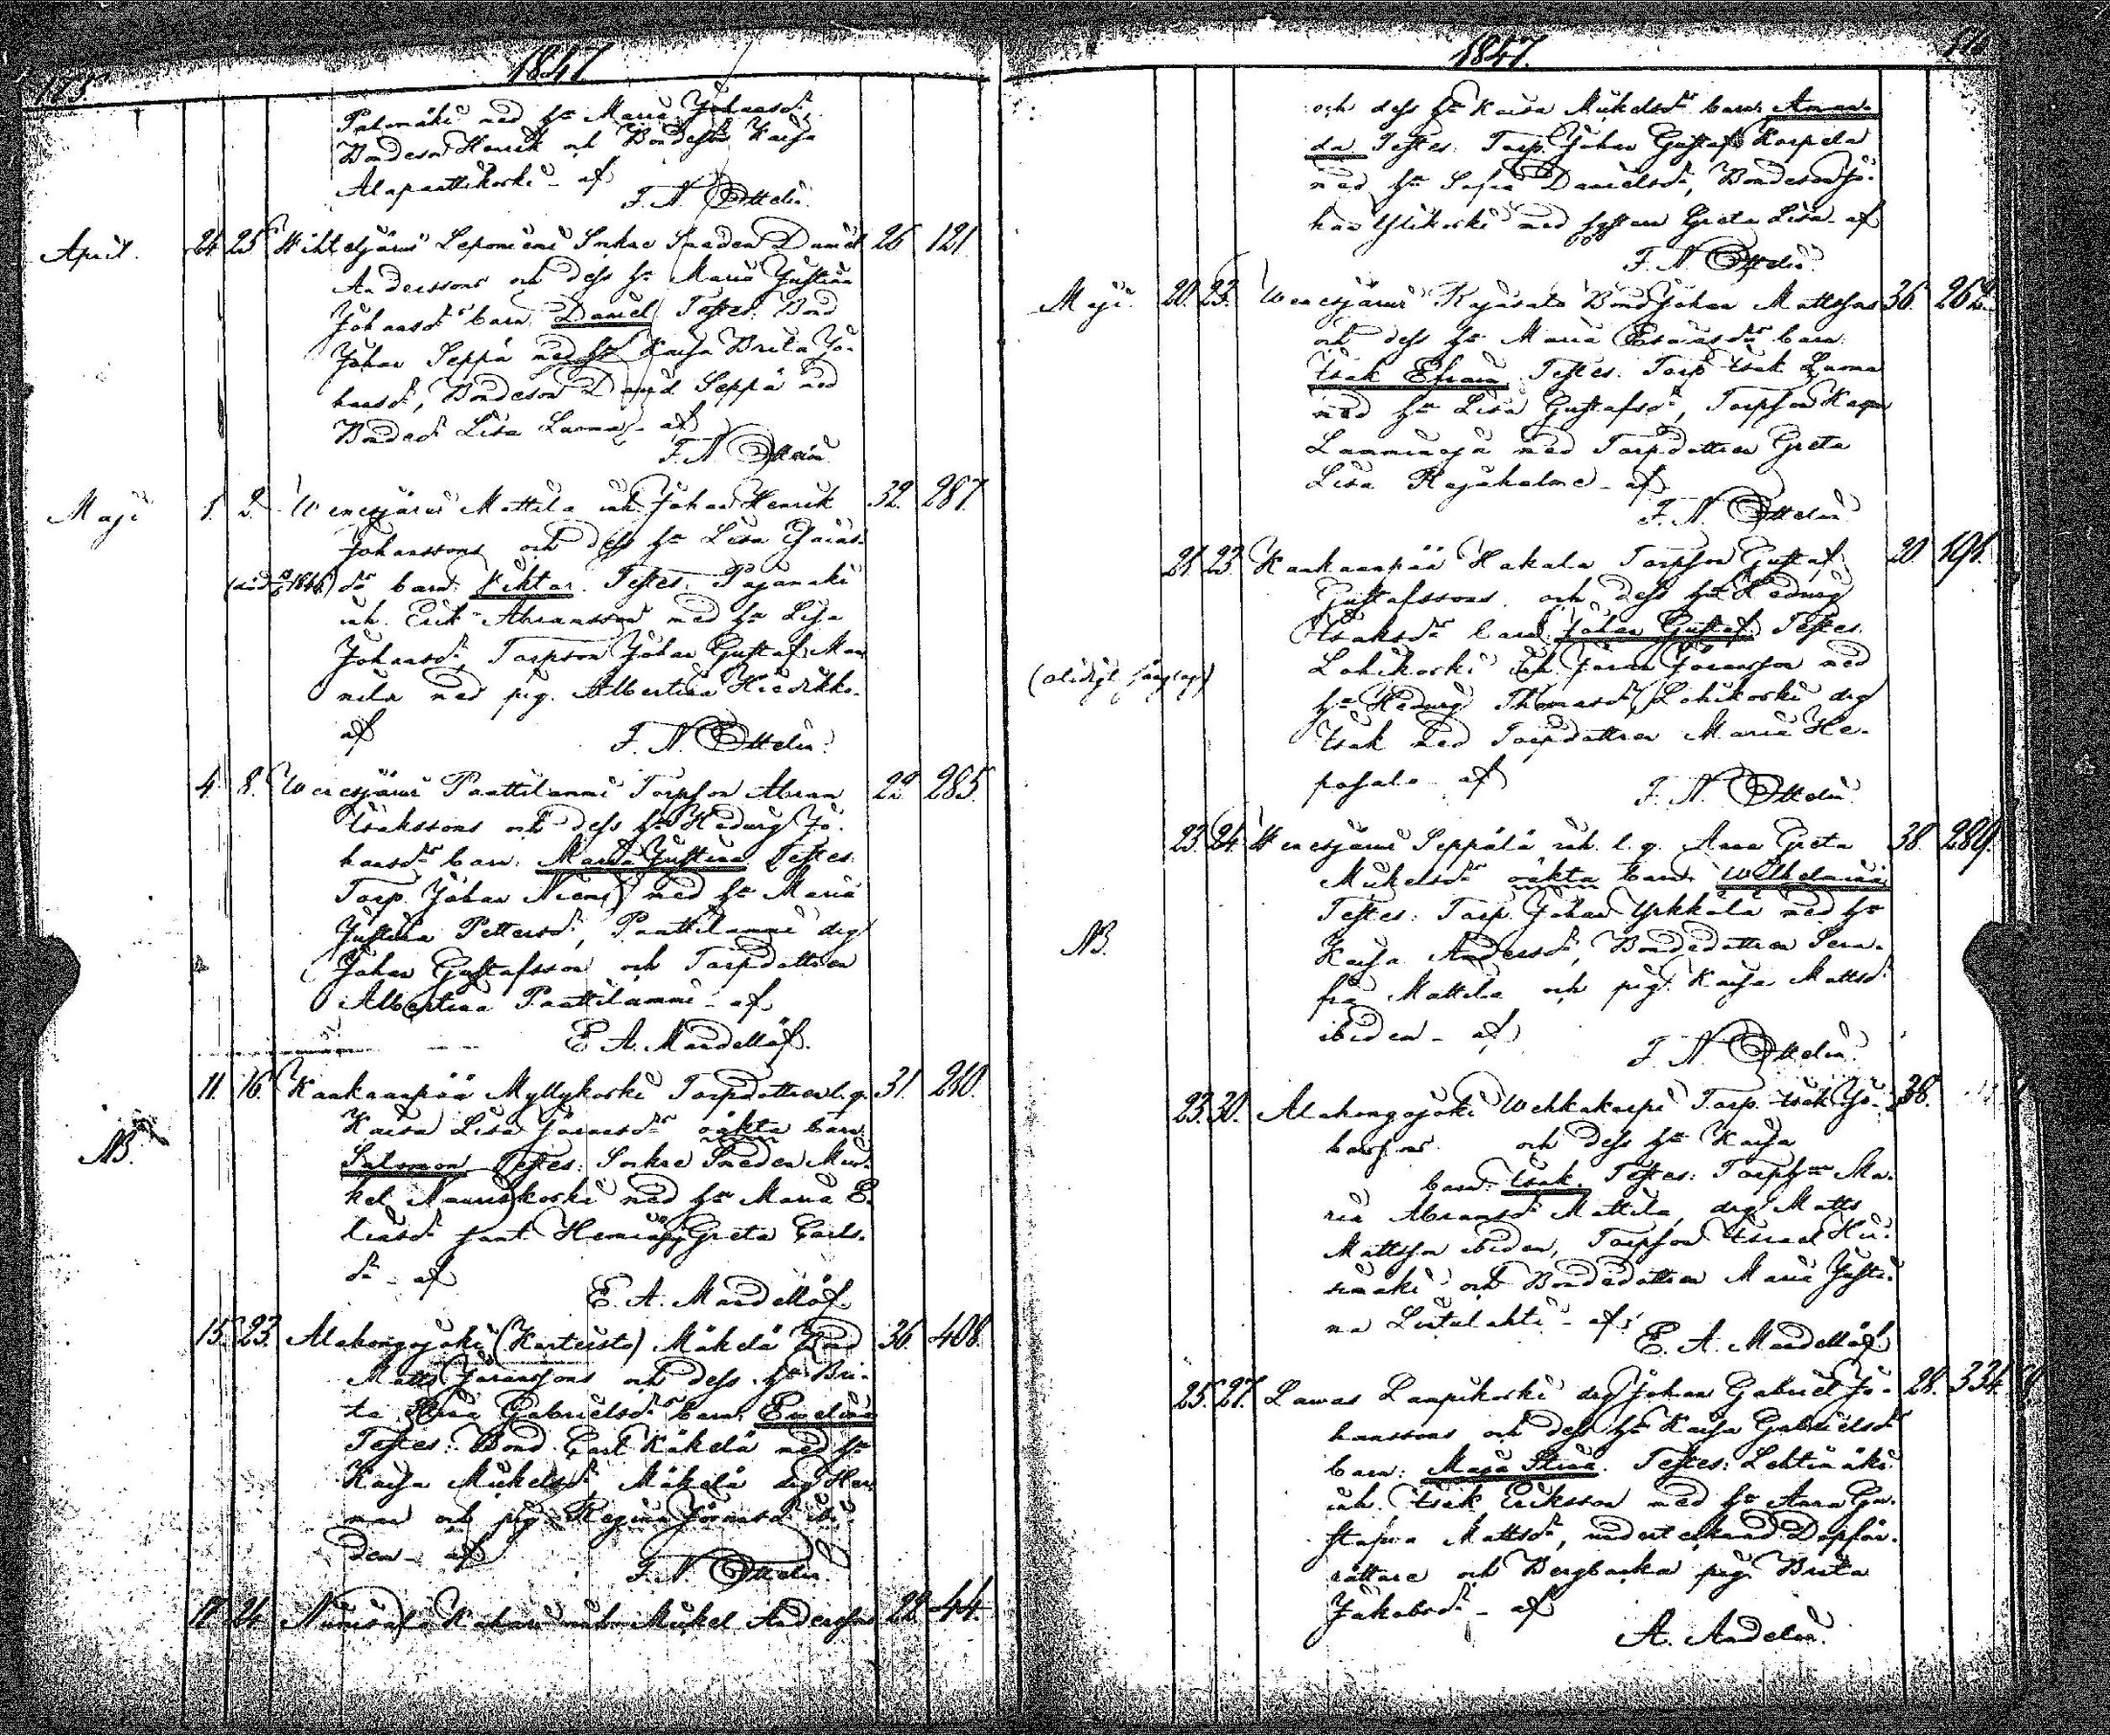 175.
1847
Palomäki med h: Maria Johansd:
Bondeson Henrik och Bondehu Kaisa
Alapaattikoski - af
F. N. Ottelin.
April. 24. 25. Wihteljärvi Leponiemi Sockne Smeden Daniel 26 121.
Anderssons och dess h: Maria Justina
Johansdr barn Daniel Testes: Bond
Johan Seppä med h: Kaisa Brita Jo-
hansd:, Bondeson David Seppä med
Bonded: Lisa Luoma - af
F. N. Ottelin
Maji 1. 2. Wenesjärvi Mattila inh. Johan Henrik 32. 287.
Johanssons och dess h: Lisa Esaias-
dr barn Viktor. Testes: Pajamäki
inh. Erik Abramsson med h: Lisa
Johansd:, Torpson Johan Gustaf Man
nila med pig. Albertina Hiedikko.
af
F. N. Ottelin.
4. 8. Wenesjärvi Paattilammi Torpson Abram 22 285.
Isakssons och dess h: Hedvig Jo-
hansdr barn: Maria Justina Testes:
Torp. Johan Niemi med h: Maria
Justina Pettersd:, Paattilammi drg
Johan Gustafsson och Torpdottren
Albertina Paattilammi - af
E. A. Mandellöf.
11. 16. Kankaanpää Myllykoski Torpdottren l. q. 31. 260.
Kaisa Lisa Jöransdr oäkta barn
NB.
Salomon Testes: Sockne Smeden Mic-
kel Nauriskoski med h: Maria E-
liasd: samt Hemiäg Greta Carls-
d: - af
E. A. Mandellöf
15. 23. Alahongojoki (Karteisto) Mäkelä Bond 36. 408.
Matts Jöranssons och dess h: Bri-
ta Lisa Gabrielsdr barn: Evelina
Testes: Bond Carl Käkelä med h:
Kaisa Mickelsd: Mäkelä drg Her
man och pig Regina Jöransd: ibi-
dem - af
F. N. Ottelin.
17. 24. Niinisalo inh. Mickel Andersson 22 44.
1847.
och dess h: Kaisa Mickelsdr barn: Aman-
da Testes: Torp. Johan Gustaf Korpela
med h: Sofia Danielsd:, Bondeson Jo-
han Ylikoski med syster Greta Lisa - af
F. N. Ottelin
Maji. 20. 23. Wenesjärvi Rajasalo Bond Johan Mattssons 36. 262.
och dess h: Maria Esaiasdr barn:
Isak Efraim Testes: Torp Isak Luoma
med h: Lisa Gustafsd:, Torpson
Lamminoja med Torpdottren Greta
Lisa Rajahalme - af
F. N. Ottelin
21. 23. Kankaanpää Hakala Torpson Gustaf 20 191.
Gustafssons och dess h: Hedvig
Isaksdr barn Johan Gustaf Testes
Lohikoski inh. Jöran Jöransson med
h: Hedvig Thomasd:, Lohikoski drg
Isak med Torpdottren Maria He-
posalo - af
F. N. Ottelin
23. 24. Wenesjärvi Seppälä inh. l. q. Anna Greta 38. 289.
Mickelsdr oäkta barn Wilhelmina
Testes: Torp. Johan Yrkkälä med h:
NB.
Kaisa Andersd:, Bondedottren Sera-
fia Mattila och pig. Kaisa Mattsd:
ibidem - af
F. N. Ottelin.
23. 30. Alahongojoki Wehkakorpi Torp. Isak Jo- 38.
hanssons och dess h: Kaisa
barn: Isak. Testes: Torph: Ma-
ria Abramsd: Mattila, drg Matts
Mattsson ibidem, Torpson Israel
och Bondedottren Maria Justi-
na Lintulahti - af
E. A. Mandellöf
25. 27. Lawas Lampikoski drg Johan Gabriel Jo- 28. 334.
hanssons och dess h: Kaisa Gabrielsdr
barn: Maja Stina. Testes: Lehtimäki
inh. Isak Eriksson med h: Anna Gu-
stafva Mattsd:, undertecknad Dopför-
rättare och Bergbacka pig. Brita
Jakobsd: - af
A. Andelin.